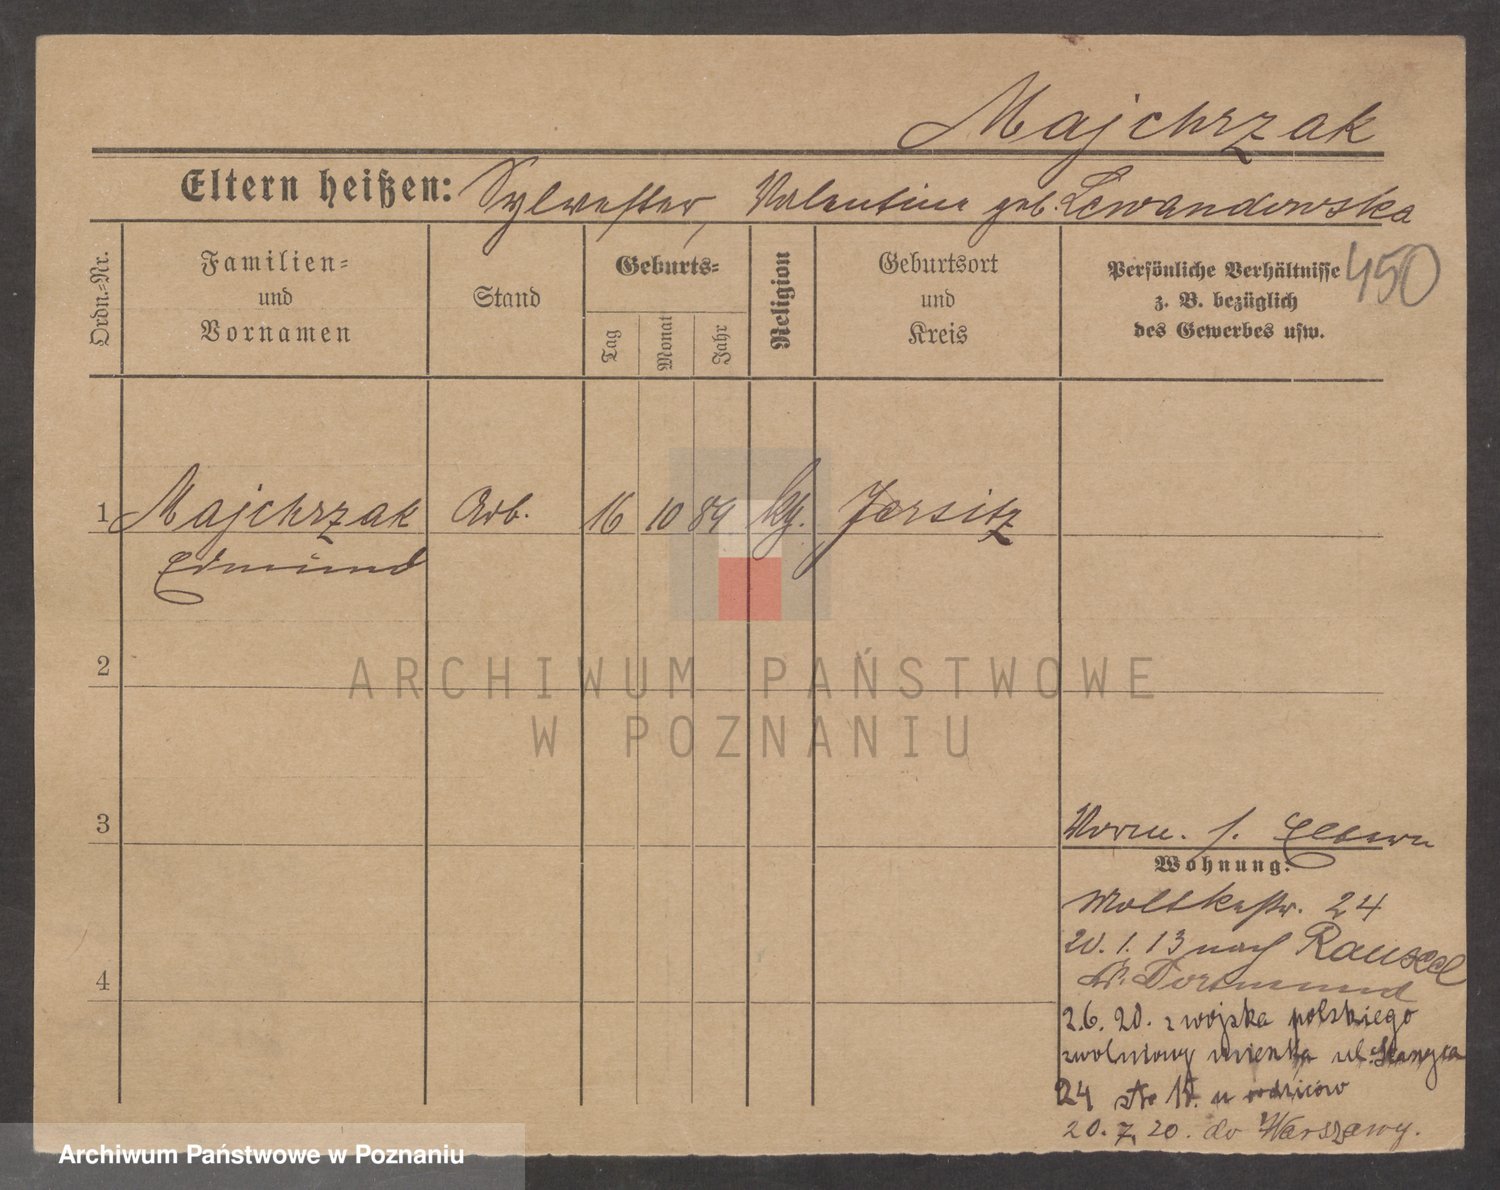 Majchrzak
Eltern heißen: Sylvester, Valentine geb. Lewandowska
Ordn.-Nr.
Familien-
und
Vornamen
Stand
Geburts-
Tag
Monat
Jahr
Religion
Geburtsort
und
Kreis
Persönliche Verhältnisse
z. B. bezüglich
des Gewerbes usw.
450
1 Majchrzak Arb. 16 10 89 kg. Jersitz
Edmund
2
3
4
Vorm. s. Eltern
Wohnung:
Moltkestr. 24
20. 1. 13 nach Rauxel
Kr. Dortmund
2.6. 20. z wojska polskiego
zwolniony mieszka ul.
24 u rodziców
20. 7. 20. do Warszawy.
ARCHIWUM PAŃSTWOWE
W POZNANIU
Archiwum Państwowe w Poznaniu